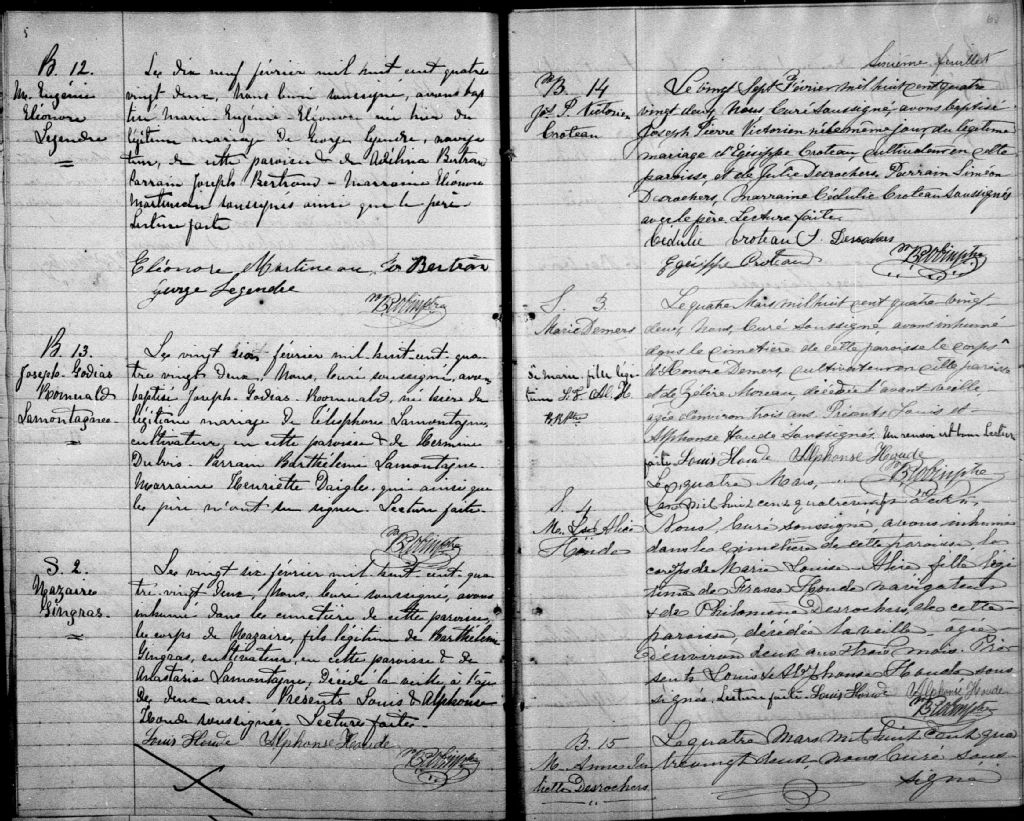 5
B. 12.
M. Eugénie
Eliónore
Legendre
Les dix neuf février mil huit cent quatre
vingt deux, Nous Curé soussigné, avons bap
tisé Marie-Eugenie-Eliónore né hier du
légitime mariage de George Legendre, naviga
teur, de cette paroisse & de Adélina Bertran
Parrain Joseph Bertrand - Marraine Eliónore
Martineau soussignés ainsi que le père
Lecture faite
Eliónore Martineau, Jo Bertran
George Legendre
B. 13.
Joseph-Godias
Romuald
Lamontagne
Les vingt février mil huit-cent-qua
tre vingt Deux, Nous, Curé soussigné, avons
baptisé Joseph-Godias-Romuald, né hier du
légitime mariage de Télésphore Lamontagne,
cultivateur, en cette paroisse & de Hermine
Dubois. Parrain Barthélemi Lamontagne.
Marraine Henriette Daigle, qui ainsi que
le père n'ont su signer. Lecture faite.
S. 2.
Nazaire
Gingras.
Les vingt six février mil huit-cent-qua
tre-vingt Deux, Nous, Curé soussigné, avons
inhumé dans le cimetière de cette paroisse,
le corps de Nazaire, fils légitime de Barthélemi
Gingras, cultivateur, en cette paroisse & de
Anastasie Lamontagne, Décédé la veille à l'age
De deux ans. Présents Louis & Alphonse
Houde soussignés. Lecture faite
Louis Houde Alphonse Houde
Sixieme feuillet
B. 14
Jos. P. Victorien
Croteau
Le vingt Sept Février mil huit cent quatre
vingt deux, Nous Curé Soussigné, avons baptisé
Joseph Pierre Victorien né le même jour du légitime
mariage d'Egésippe Croteau, cultivateur en cette
paroisse, et de Julie Desrochers, Parrain Siméon
Desrochers, Marraine Cédulie Croteau Soussignés
avec le père. Lecture faite
Cédulie Croteau S. Desrochers
Egésippe Croteau
S. 3
Marie Demers
Le quatre Mars mil huit cent quatre vingt
deux, Nous, Curé Soussigné, avons inhumé
dans le cimetière de cette paroisse le corps
d'Honoré Demers, cultivateur en cette paroisse
et de Zélire Moreau, décédée l'avant veille,
agée d'environ trois ans. Présents Louis et
Alphonse Houde Soussignés. Un renvoi est bon Lecture
faite Louis Houde Alphonse Houde
de marie fille légi
time
S. 4
M. Lse Alice
Houde
Le quatre Mars,
mil huit cent quatrevingt
Nous, Curé soussigné avons inhumé
dans le cimetière de cette paroisse, le
corps de Marie Louise Alice fille légi
time de Houde navigateur
& de Philomène Desrochers, de cette
paroisse, décédée la veille, agée
d'environ deux ans mois. Pré
sents Louis & Alphonse Houde sous
signés, Lecture faite Louis Houde Alphonse Houde
B. 15
M. Desrochers
Le quatre Mars Mil huit Cent qua
trevingt deux, nous Curé Sous
signé